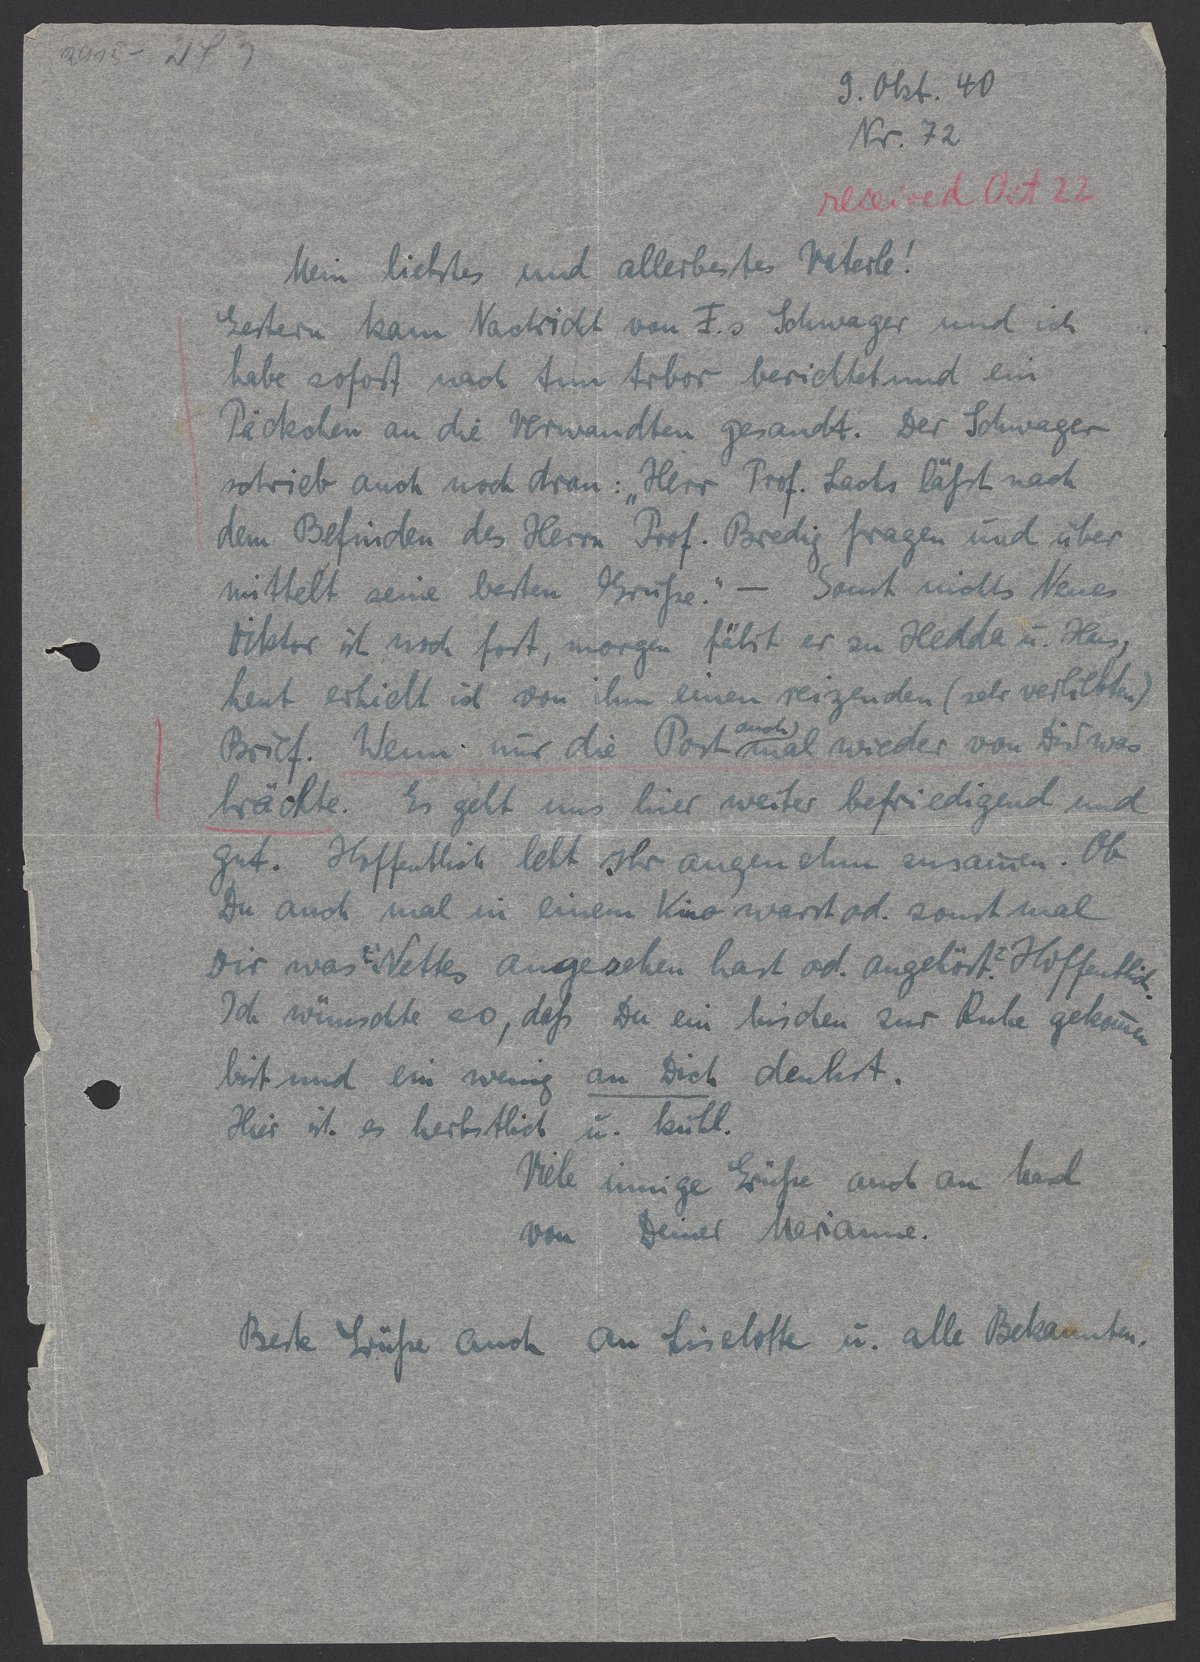 9. Okt. 40
Nr. 72
received Oct 22
Mein liebstes und allerbestes Vaterle!
Gestern kam Nachricht von F.s Schwager und ich
habe sofort nach Ann Arbor berichtet und ein
Päckchen an die Verwandten gesandt. Der Schwager
schrieb auch noch dran: „Herr Prof. Lachs läßt nach
dem Befinden des Herrn Prof. Bredig fragen und über
mittelt seine besten Grüße." — Sonst nichts Neues
Viktor ist noch fort, morgen fährt er zu Hedda u. Hans,
heut erhielt ich von ihm einen reizenden (sehr verliebten)
Brief. Wenn nur die Post auch mal wieder von Dir was
brächte. Es geht uns hier weiter befriedigend und
gut. Hoffentlich lebt Ihr angenehm zusamen. Ob
Du auch mal in einem Kino warst od. sonst mal
Dir was Nettes angesehen hast od. angehört? Hoffentlich.
Ich wünschte so, daß Du ein bischen zur Ruhe gekomen
bist und ein wenig an Dich denkst.
Hier ist es herbstlich u. kühl.
Viele innige Grüße auch an
von Deiner Marianne.
Beste Grüße auch an Liselotte u. alle Bekannten.